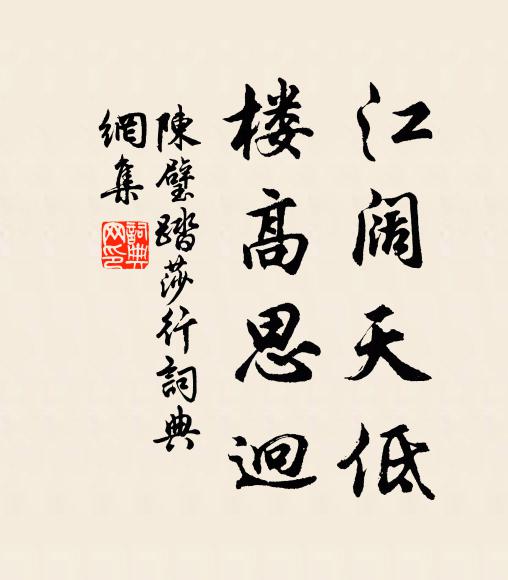 江阔天低
楼高思迥
陳璧踏莎行詞典
網集
詞典网印